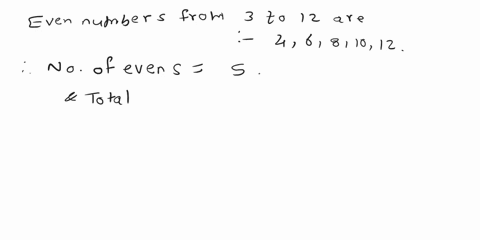 Even numbers from 3 to 12 are
:- 4, 6, 8, 10, 12.
∴ No. of evens = 5.
& Total